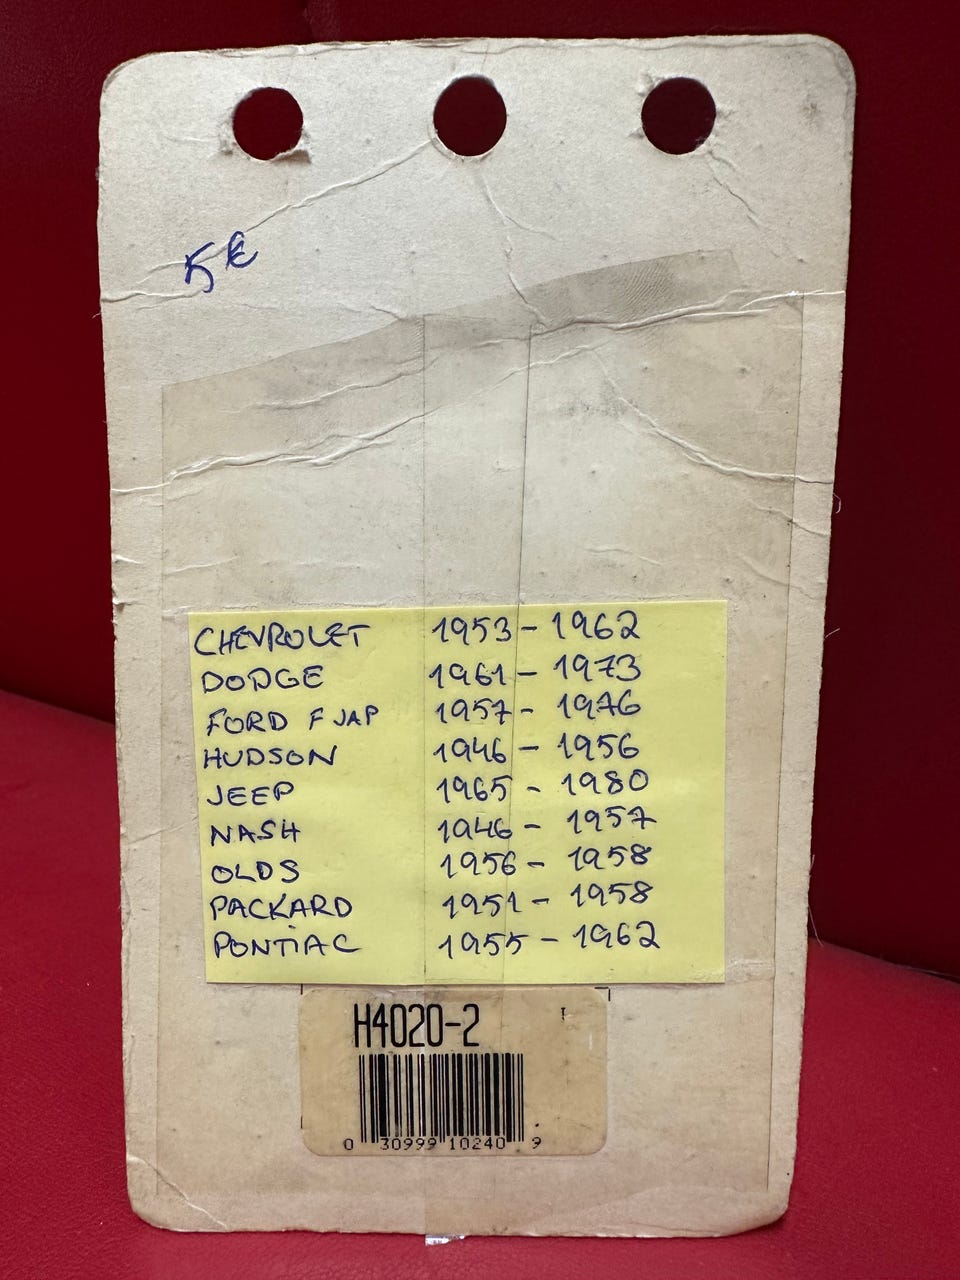 5€
CHEVROLET 1953 - 1962
DODGE 1961 - 1973
FORD F JAP 1957 - 1976
HUDSON 1946 - 1956
JEEP 1965 - 1980
NASH 1946 - 1957
OLDS 1956 - 1958
PACKARD 1951 - 1958
PONTIAC 1955 - 1962
H4020-2
0 30999 10240 9